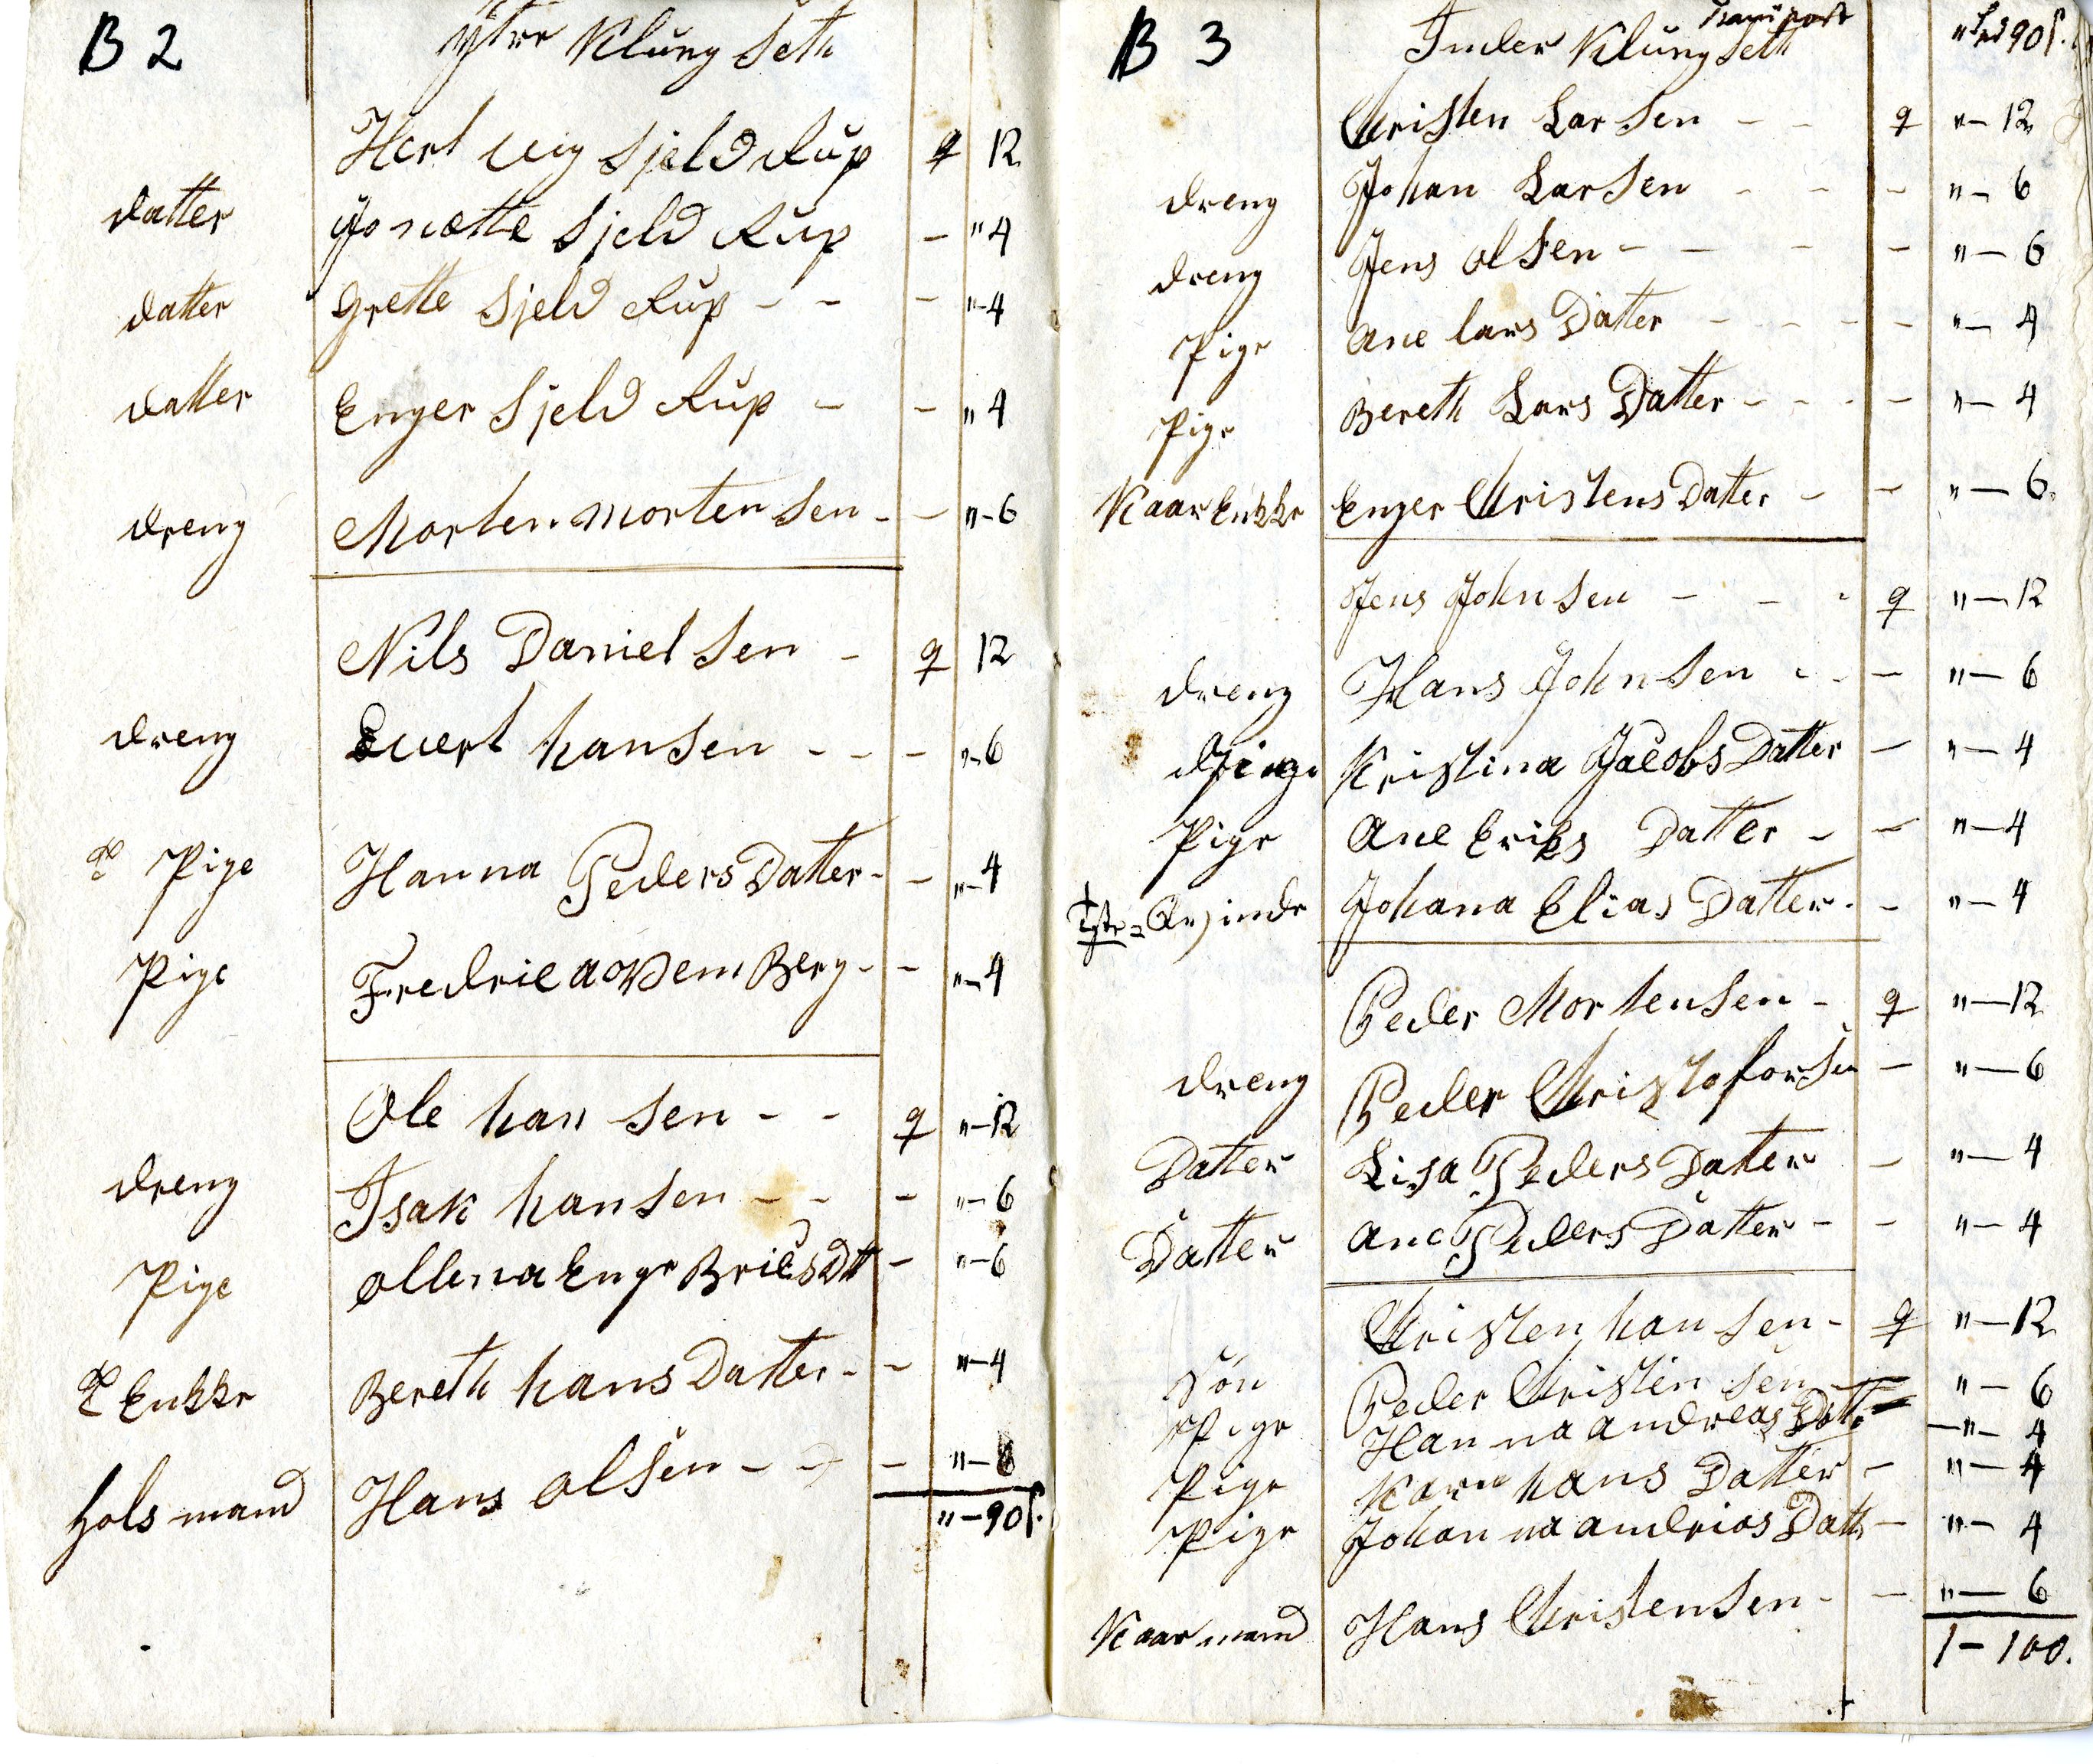 B 2
Ytre Klung Seth
Hert uig Sjeld Rup q 12
datter Jonætte Sjeld Rup - " 4
datter Grette Sjeld Rup - - - "-4
datter Enger Sjeld Rup - - " 4
dreng Morten morten Sen - - "-6
Nils Daniel Sen - q 12
dreng Evert hanSen - - - "-6
do Pige Hanna PedersDatter - - "-4
Pige
Ole han Sen - - q "-12
dreng Isak hanSen - - - "-6
Pige ollena Enge BricsDtt - "-6
do Enkke Bereth hansDatter - - "-4
hols mand Hans olSen - - - "-6
"-90 s.
B 3
Transport
Inder Klung Seth 90 s.
Christen LarSen - - q "-12
dreng Johan LarSen - - - "-6
dreng Jens olSen - - - - "-6
Pige Ane lars Datter - - - - - "-4
Pige Bereth Lars Datter - - - - "-4
Kaar Enkke Enger ChristensDatter - - "-6.
Jens JohnSen - - - q "-12
dreng Hans JohnSen - - - "-6
Pige Kristina JacobsDatter - "-4
Pige Ane Eriks Datter - - "-4
Qvinde Johana Elias Datter - - "-4
Peder MortenSen - q "-12
dreng Peder ChristoforSen - "-6
Datter Lisa PedersDatter - "-4
Datter Ane PedersDatter - - "-4
Christen hanSen - q "-12
Sön Peder ChristenSen - "-6
Pige Hanna andreas Datt - "-4
Pige Karn hans Datter - "-4
Pige Johan na andrias Datt - "-4
Kaar mand Hans ChristenSen - - "-6
1-100.